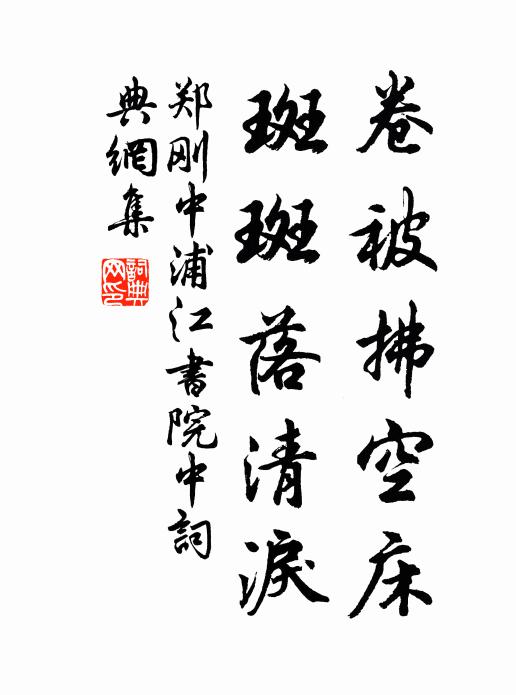 卷被拂空床
斑斑落清淚
郑刚中浦江書院中詞
典網集
詞典网印